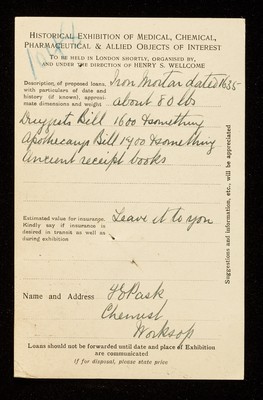 HISTORICAL EXHIBITION OF MEDICAL, CHEMICAL,
PHARMACEUTICAL & ALLIED OBJECTS OF INTEREST
TO BE HELD IN LONDON SHORTLY, ORGANISED BY,
AND UNDER THE DIRECTION OF HENRY S. WELLCOME
Description of proposed loans, Iron Mortar dated 1635
with particulars of date and
history (if known), approxi-
mate dimensions and weight about 80 lbs
Druggists Bill 1600 & something
Apothecarys Bill 1700 & something
Ancient receipt books
Estimated value for insurance. Leave it to you
Kindly say if insurance is
desired in transit as well as
during exhibition
Name and Address J E Pask
Chemist
Worksop
Loans should not be forwarded until date and place of Exhibition
are communicated
If for disposal, please state price
Suggestions and information, etc., will be appreciated